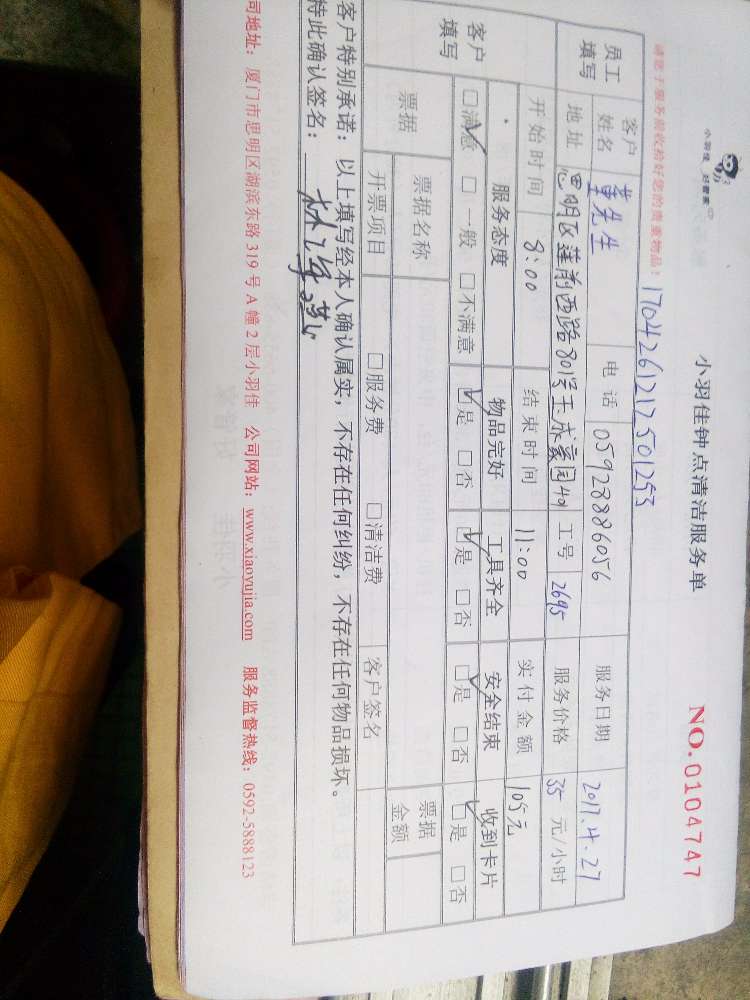 小羽佳 好管家
小羽佳钟点清洁服务单
NO.0104747
请您于服务前收拾好您的贵重物品：
17042612172501253
员工填写
客户姓名 董先生 电话 05928886056 服务日期 2017.4.27
地址 思明区莲前西路801号玉成豪园49 工号 2695 服务价格 35 元/小时
开始时间 8:00 结束时间 11:00 实付金额 105元
客户填写
服务态度 物品完好 工具齐全 安全结束 收到卡片
☑满意 □一般 □不满意 ☑是 □否 ☑是 □否 ☑是 □否 ☑是 □否
票据 票据名称 票据金额
开票项目 □服务费 □清洁费 客户签名
客户特别承诺：以上填写经本人确认属实，不存在任何纠纷，不存在任何物品损坏。
特此确认签名：
司地址：厦门市思明区湖滨东路 319 号 A 幢 2 层小羽佳 公司网站：www.xiaoyujia.com 服务监督热线：0592-5888123